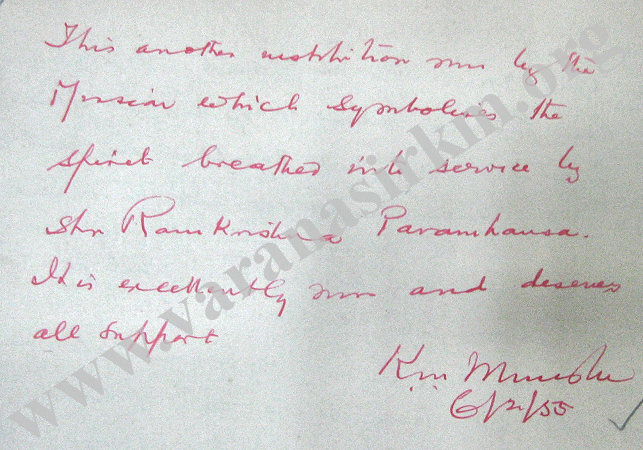 This another institution run by the
Mission which symbolises the
spirit breathed into service by
Shri Ramkrishna Paramhansa.
It is excellently run and deserves
all support
K.M. Munshi
6/2/55
www.varanasirkm.org